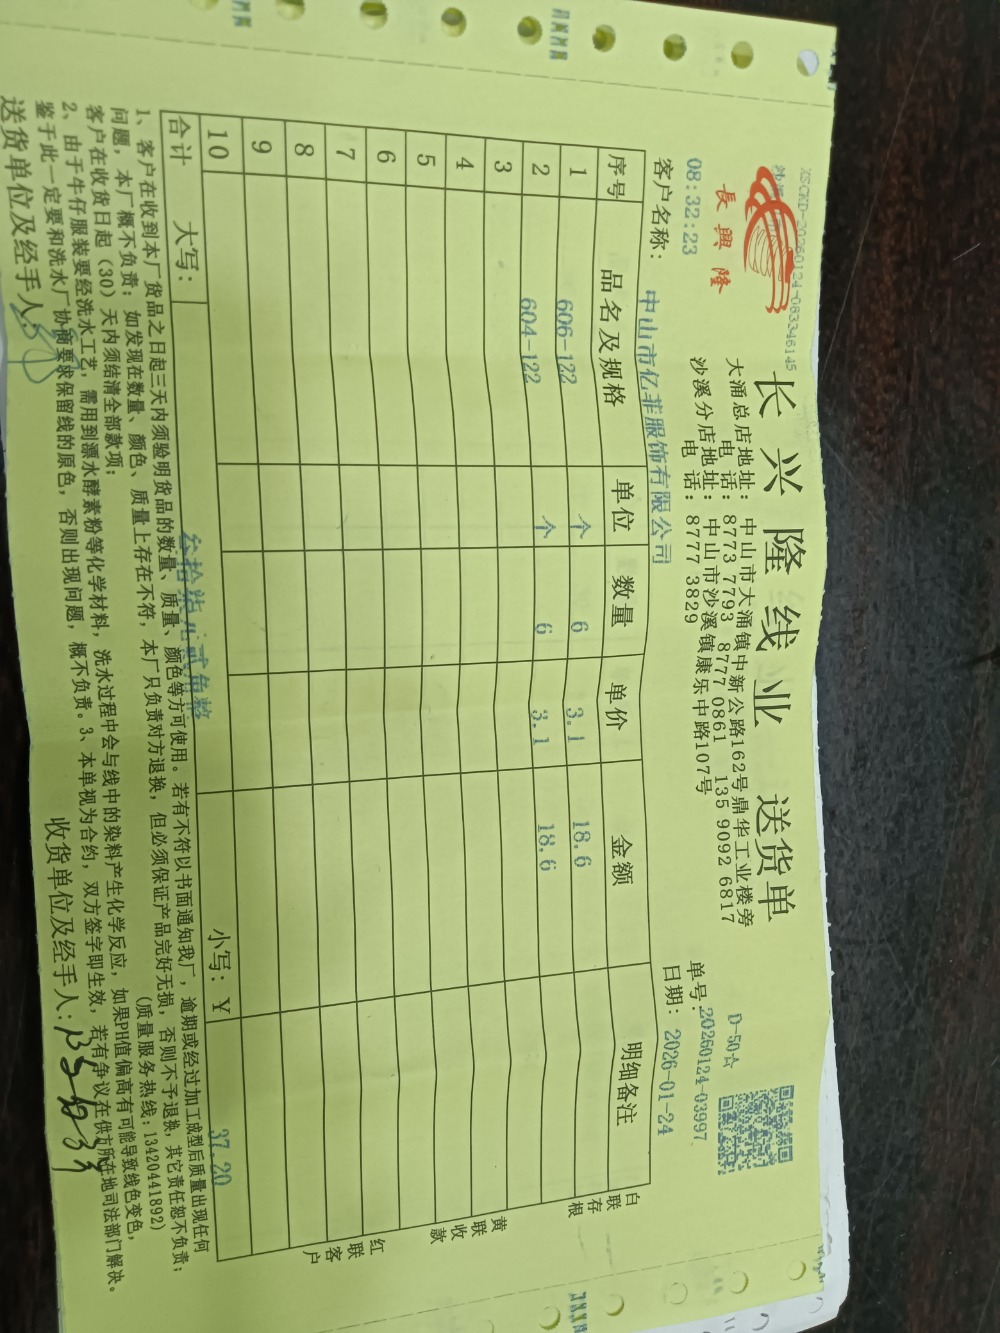 XSCKD-20260124-083346145
長興隆
长兴隆线业 送货单
大涌总店地址：中山市大涌镇中新公路162号鼎华工业楼旁
电 话：8773 7793 8777 0861 135 9092 6817
沙溪分店地址：中山市沙溪镇康乐中路107号
电 话：8777 3829
D-50☆
单号：20260124-03997
08:32:23
日期：2026-01-24
客户名称：中山市亿菲服饰有限公司
序号 品名及规格 单位 数量 单价 金额 明细备注
1 606-122 个 6 3.1 18.6
2 604-122 个 6 3.1 18.6
3
4
5
6
7
8
9
10
合计 大写：叁拾柒元贰角整 小写：￥ 37.20
白联存根
黄联收款
红联客户
1、客户在收到本厂货品之日起三天内须验明货品的数量、质量、颜色等方可使用。若有不符以书面通知我厂，逾期或经过加工成型后质量出现任何
问题，本厂概不负责；如发现在数量、颜色、质量上存在不符，本厂只负责对方退换，但必须保证产品完好无损，否则不予退换，其它责任恕不负责；
客户在收货日起（30）天内须结清全部款项； （质量服务热线：13420441892）
2、由于牛仔服装要经洗水工艺，需用到漂水酵素粉等化学材料，洗水过程中会与线中的染料产生化学反应，如果PH值偏高有可能导致线色变色，
鉴于此一定要和洗水厂协商要求保留线的原色，否则出现问题，概不负责。3、本单视为合约，双方签字即生效，若有争议在供方所在地司法部门解决。
送货单位及经手人： 收货单位及经手人：